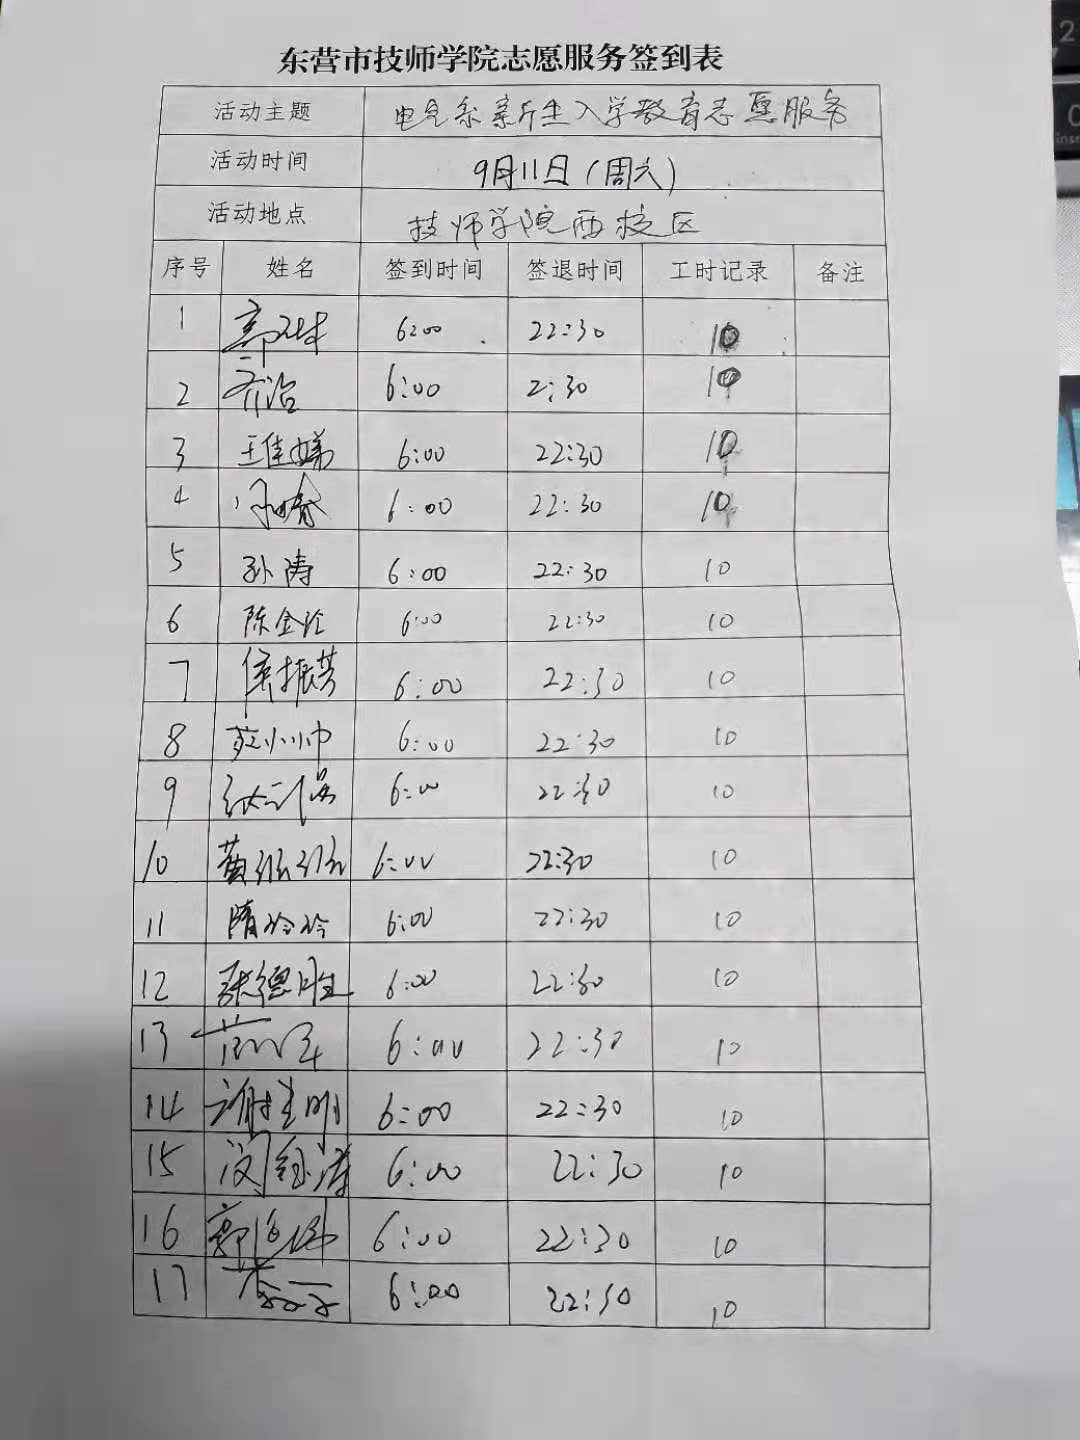 东营市技师学院志愿服务签到表
活动主题 电气系新生入学教育志愿服务
活动时间 9月11日(周六)
活动地点 技师学院西校区
序号 姓名 签到时间 签退时间 工时记录 备注
1 6:00 22:30 10
2 乔治 6:00 2:30 10
3 王佳娣 6:00 22:30 10
4 6:00 22:30 10
5 孙涛 6:00 22:30 10
6 陈金玲 6:00 22:30 10
7 侯振芳 6:00 22:30 10
8 苏小小巾 6:00 22:30 10
9 6:00 22:30 10
10 黄 6:00 22:30 10
11 隋玲玲 6:00 22:30 10
12 张德胜 6:00 22:30 10
13 6:00 22:30 10
14 谢生明 6:00 22:30 10
15 闵钰涛 6:00 22:30 10
16 郭 6:00 22:30 10
17 6:00 22:30 10
2
0
ins